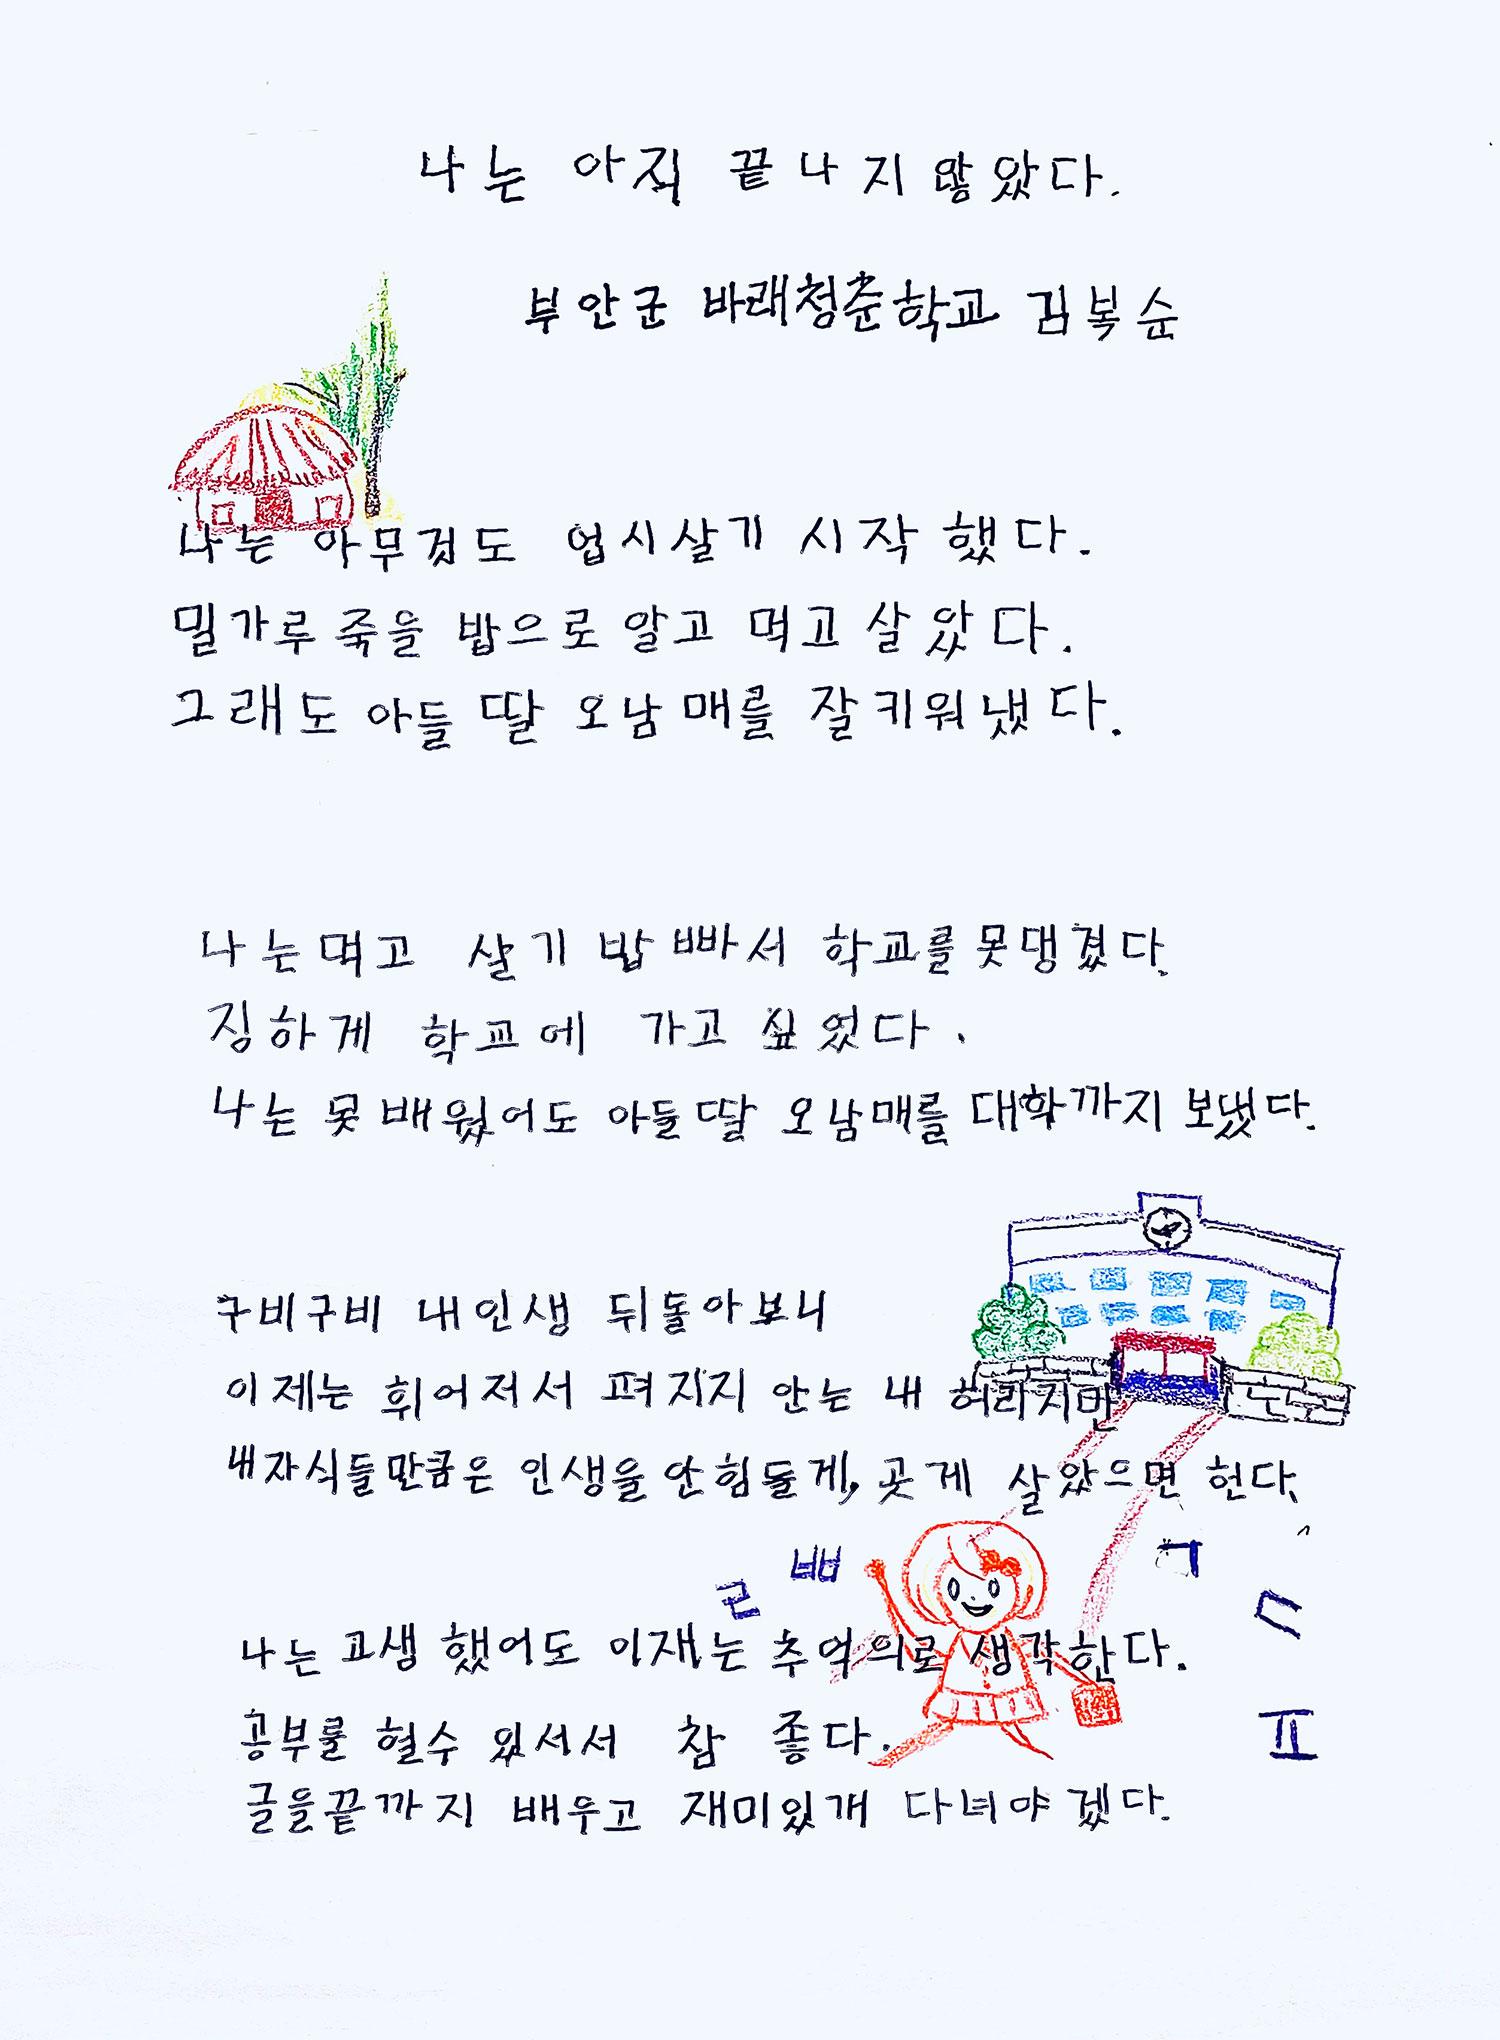 나는 아직 끝나지 않았다.
부안군 바래청춘학교 김복순
나는 아무겁도 업시살기 시작 했다.
밀가루 죽을 밥으로 알고 먹고 살았다.
그래도 아들 딸 오남매를 잘키워냈다.
나는 먹고 살기 밥빠서 학교를 못댕겼다.
징하게 학교에 가고 싶었다.
나는 못배웠어도 아들딸 오남매를 대학까지 보냈다.
구비구비 내인생 뒤돌아보니
이제는 휘어저서 펴지지 안는 내 허리지만
내자식들만큼은 인생을 안힘들게, 곳게 살았으면 헌다.
ㄹ ㅃ ㄱ ㄷ
나는 고생 했어도 이재는 추억의로 생각한다.
ㅍ
공부를 헐수 있서서 참 좋다.
글을끝까지 배우고 재미있개 다녀야겠다.